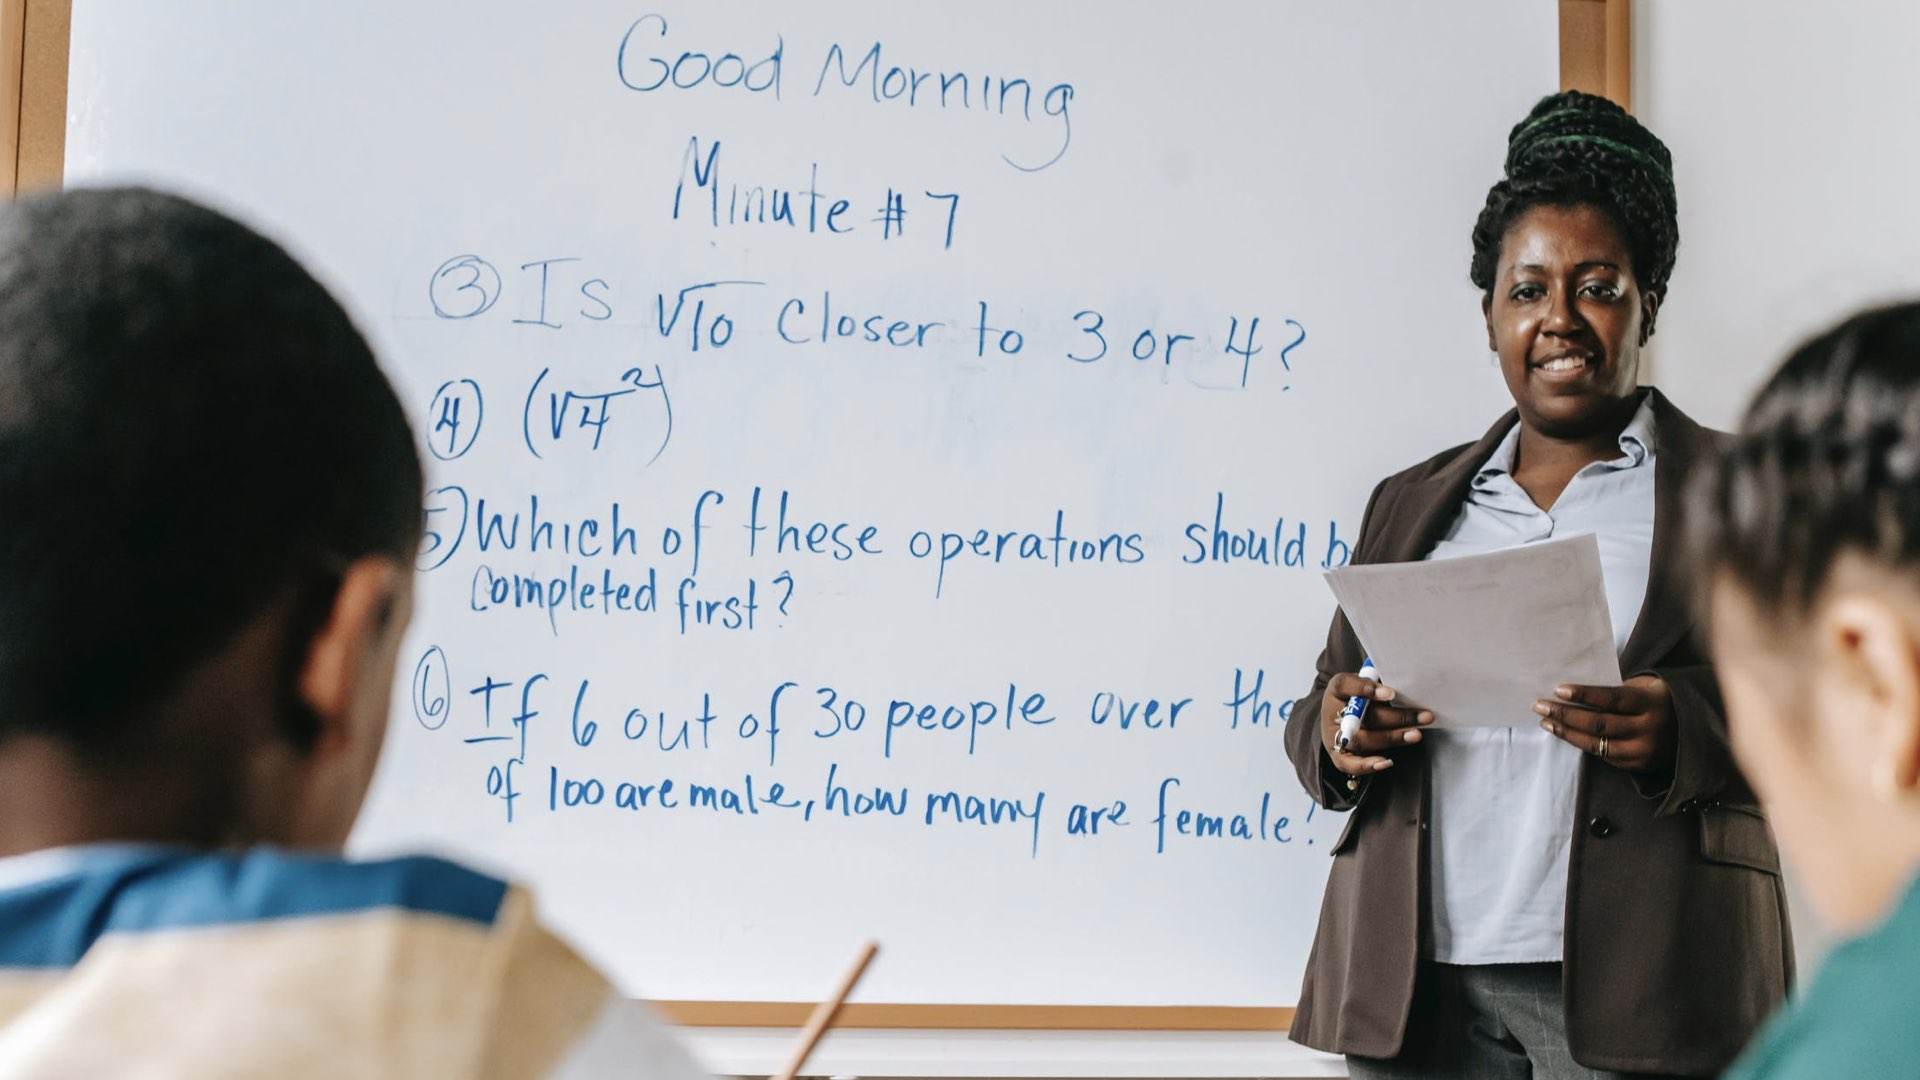 Good Morning
Minute #7
③ Is √10 closer to 3 or 4?
④ (√4²)
5) Which of these operations should
completed first?
⑥ If 6 out of 30 people over the
of 100 are male, how many are female?